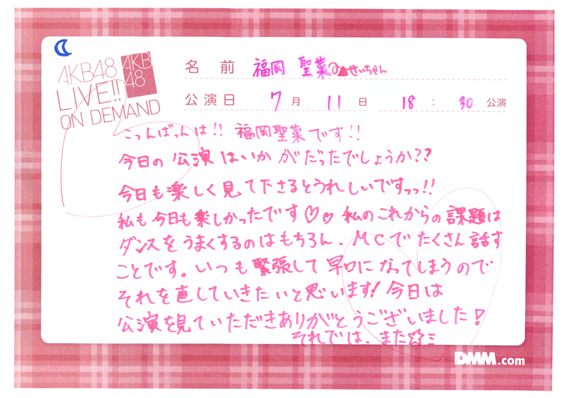 AKB48
LIVE!!
ON DEMAND
AKB
48
名前 福岡 聖菜 せいちゃん
公演日 7月 11日 18:30 公演
こんばんは!! 福岡聖菜です!!
今日の公演はいかがだったでしょうか??
今日も楽しく見て下さるとうれしいですっっ!!
私も今日も楽しかったです♡♡ 私のこれからの課題は
ダンスをうまくするのはもちろん、MCでたくさん話す
ことです。いつも緊張して早口になってしまうので
それを直していきたいと思います! 今日は
公演を見ていただきありがとうございました!
それでは、また☆ミ
DMM.com